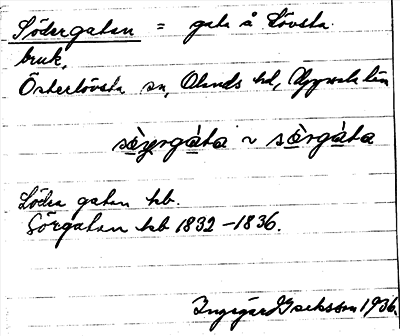 Södergatan = gata å Lövsta
bruk,
Österlövsta sn, Olands hd, Uppsala län
sö̀rgáta
Södra gatan kb.
Sörgatan kb 1832-1836.
Ingegärd 1936.